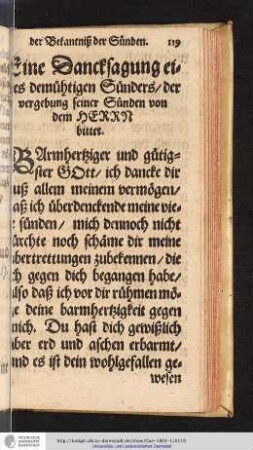 der Bekantniß der Sünden. 119
Eine Dancksagung ei-
es demühtigen Sünders/ der
vergebung seiner Sünden von
dem HERRN
bittet.
BArmhertziger und gütig-
ster GOtt/ ich dancke dir
uß allem meinem vermögen/
aß ich überdenckende meine vie-
e sünden/ mich dennoch nicht
ürchte noch schäme dir meine
bertrettungen zubekennen/ die
ch gegen dich begangen habe/
lso daß ich vor dir rühmen mö-
e deine barmhertzigkeit gegen
mich. Du hast dich gewißlich
ber erd und aschen erbarmt/
und es ist dein wohlgefallen ge-
wesen